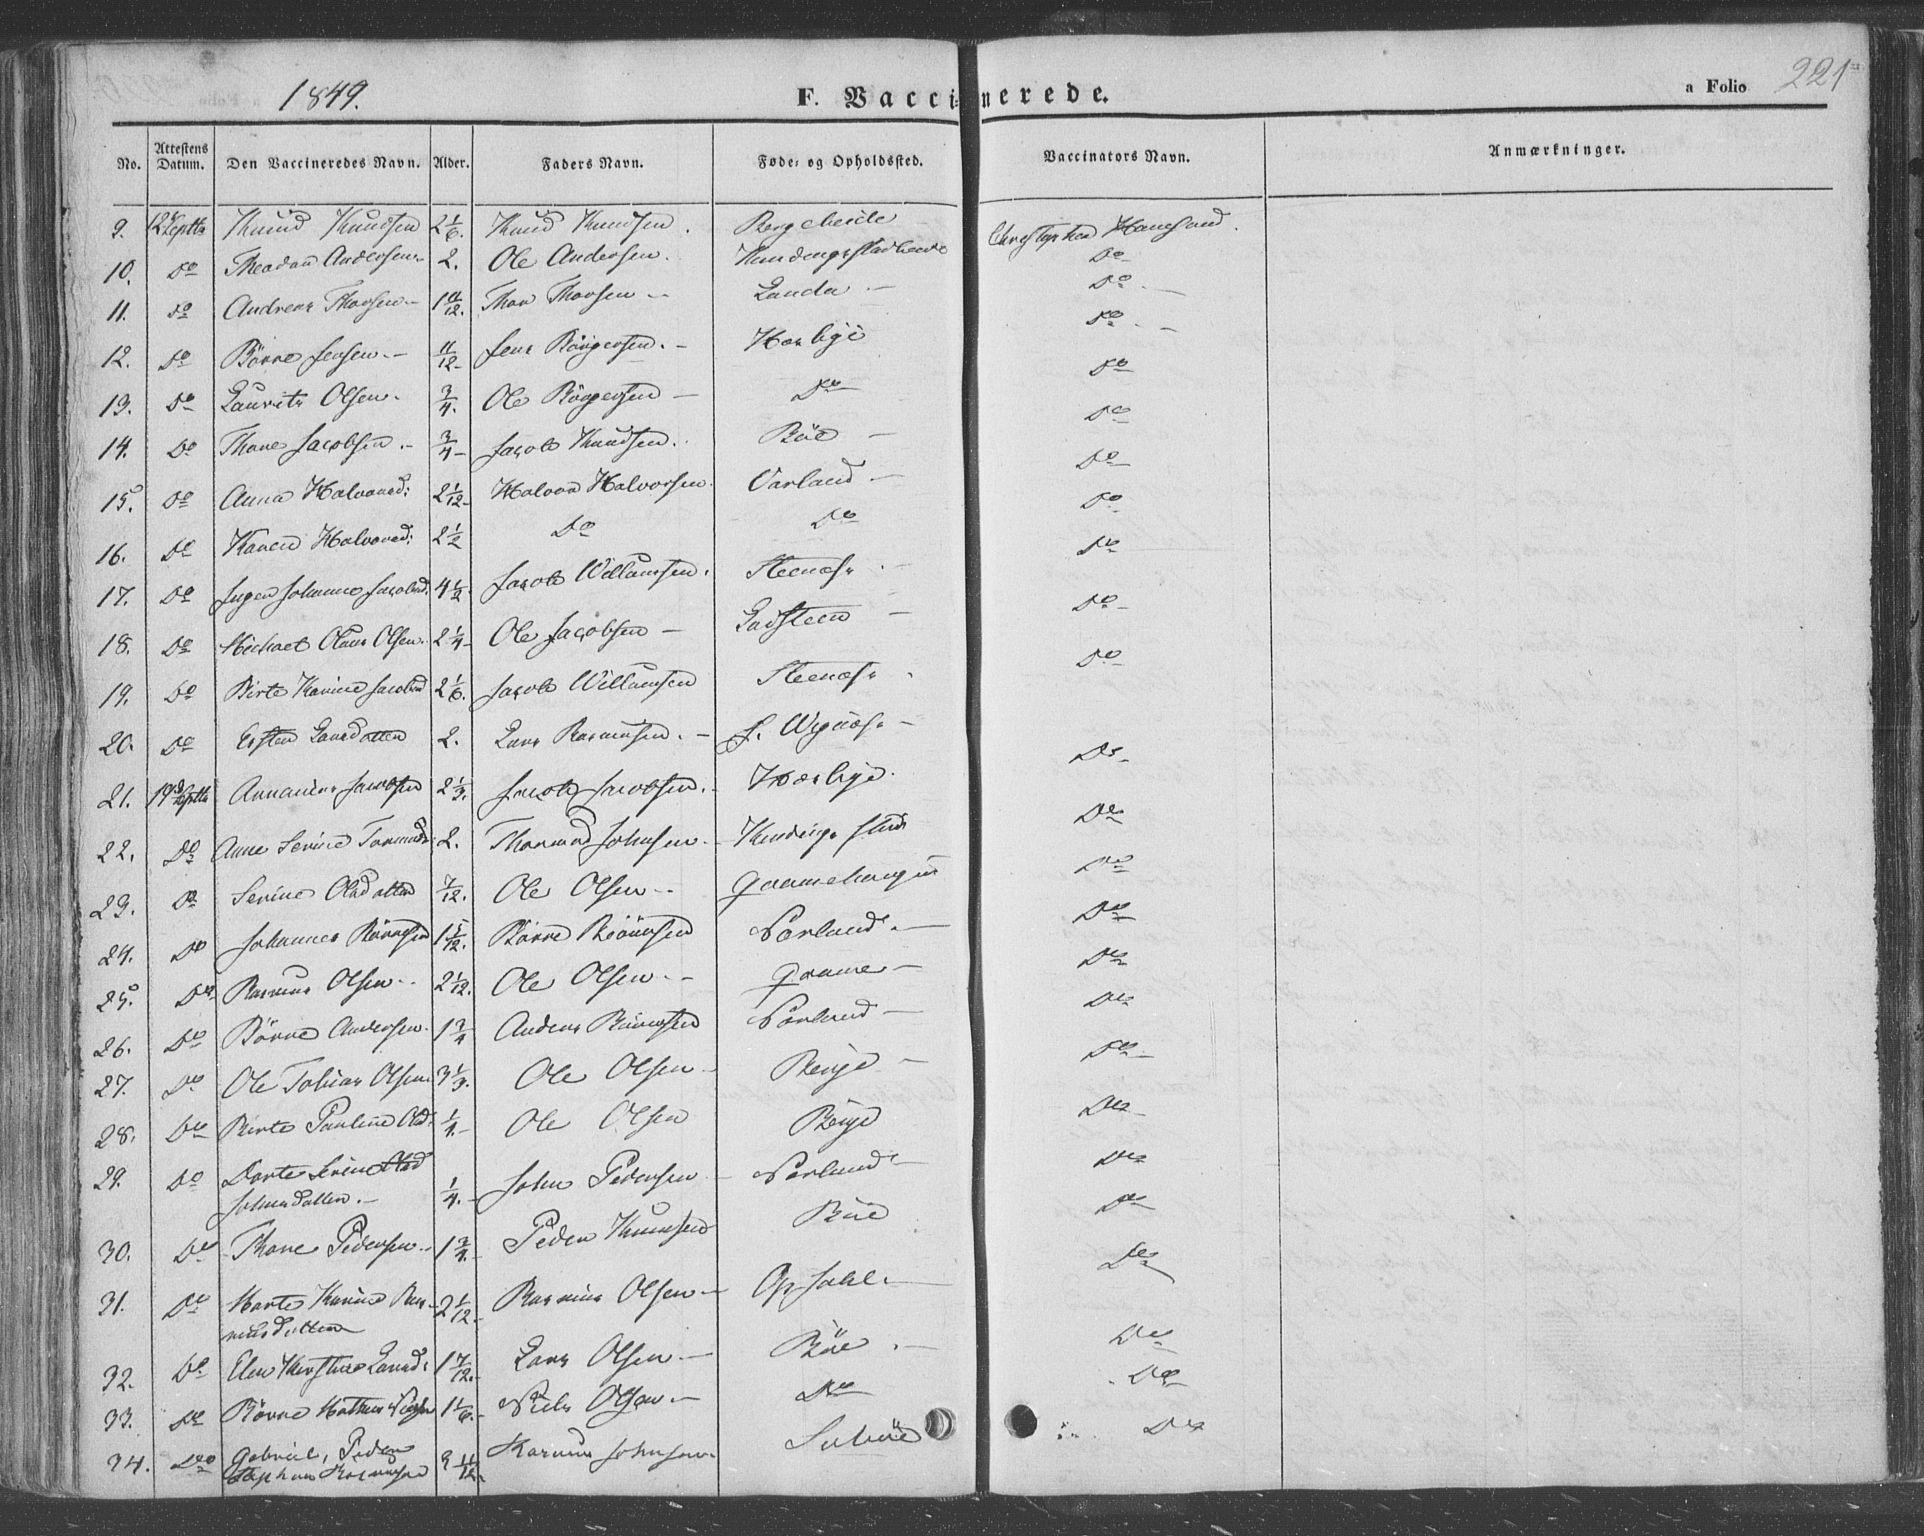 1849.
F. Vaccinerede.
a Folio 221
No. Attestens Datum. Den Vaccineredes Navn. Alder. Faders Navn. Føde- og Opholdssted. Vaccinators Navn. Anmærkninger.
9. 18 Septbr Knud Knudsen 2 1/6. Knud Knudsen. Bergeheide
10. Do Andersen 2. Ole Andersen. Do
11. Do Andreas Thorsen 1 11/12. Thor Thorsen Landa Do
12. Do Börre Jensen 11/12 Jens Börgersen. Do
13. Do Laurits Olsen. 3/4. Ole Börgersen Do Do
14. Do Thore Jacobsen 3/4 Jacob Knudsen. Böe Do
15. Do Anna Halvorsd: 2 1/12 Halvor Halvorsen Varland Do
16. Do Karen Halvorsd: 2 1/2 Do Do Do
17. Do Inger Johanne Jacobsd. 4 1/2 Jacob Willumsen. Steenæs. Do
18. Do Michael Olaus Olsen 2 1/4 Ole Jacobsen Ladsteen Do
19. Do Birte Karine Jacobsd 2 1/6. Jacob Willumsen Steenæs. Do
20. Do Larsdatter 2. Lars Rasmusen.
21. 19 Septbr Jacobsen 2 1/3. Jacob Jacobsen. Do
22. Do Anne Serine 2. Johnsen Do
23. Do Serine Olsdatter 7/12. Ole Olsen Do
24. Do Johannes Börresen 1 5/12. Börre Sörland. Do
25. Do Rasmus Olsen 2 1/12. Ole Olsen Do
26. Do Börre Andersen. 1 3/4 Anders Sörland Do
27. Do Ole Tobias Olsen 3 1/3. Ole Olsen Berge Do
28. Do Berte Pauline Olsd 1/4. Ole Olsen Berge Do
29. Do Dorte Serine Olsd
Johnsdatter. 1/4. John Pedersen Sörland Do
30. Do Thore Pedersen 1 3/4. Peder Böe Do
31. Do Marte Karine Ras-
musdatter 2 1/12. Rasmus Olsen Opsahl. Do
32. Do Elen Larsd: 1 7/12. Lars Olsen Böe Do
33. Do Börre 1 1/6. Niels Olsen Do Do
34. Do Gabriel, Peder
11/12. Rasmus Johnsen Do